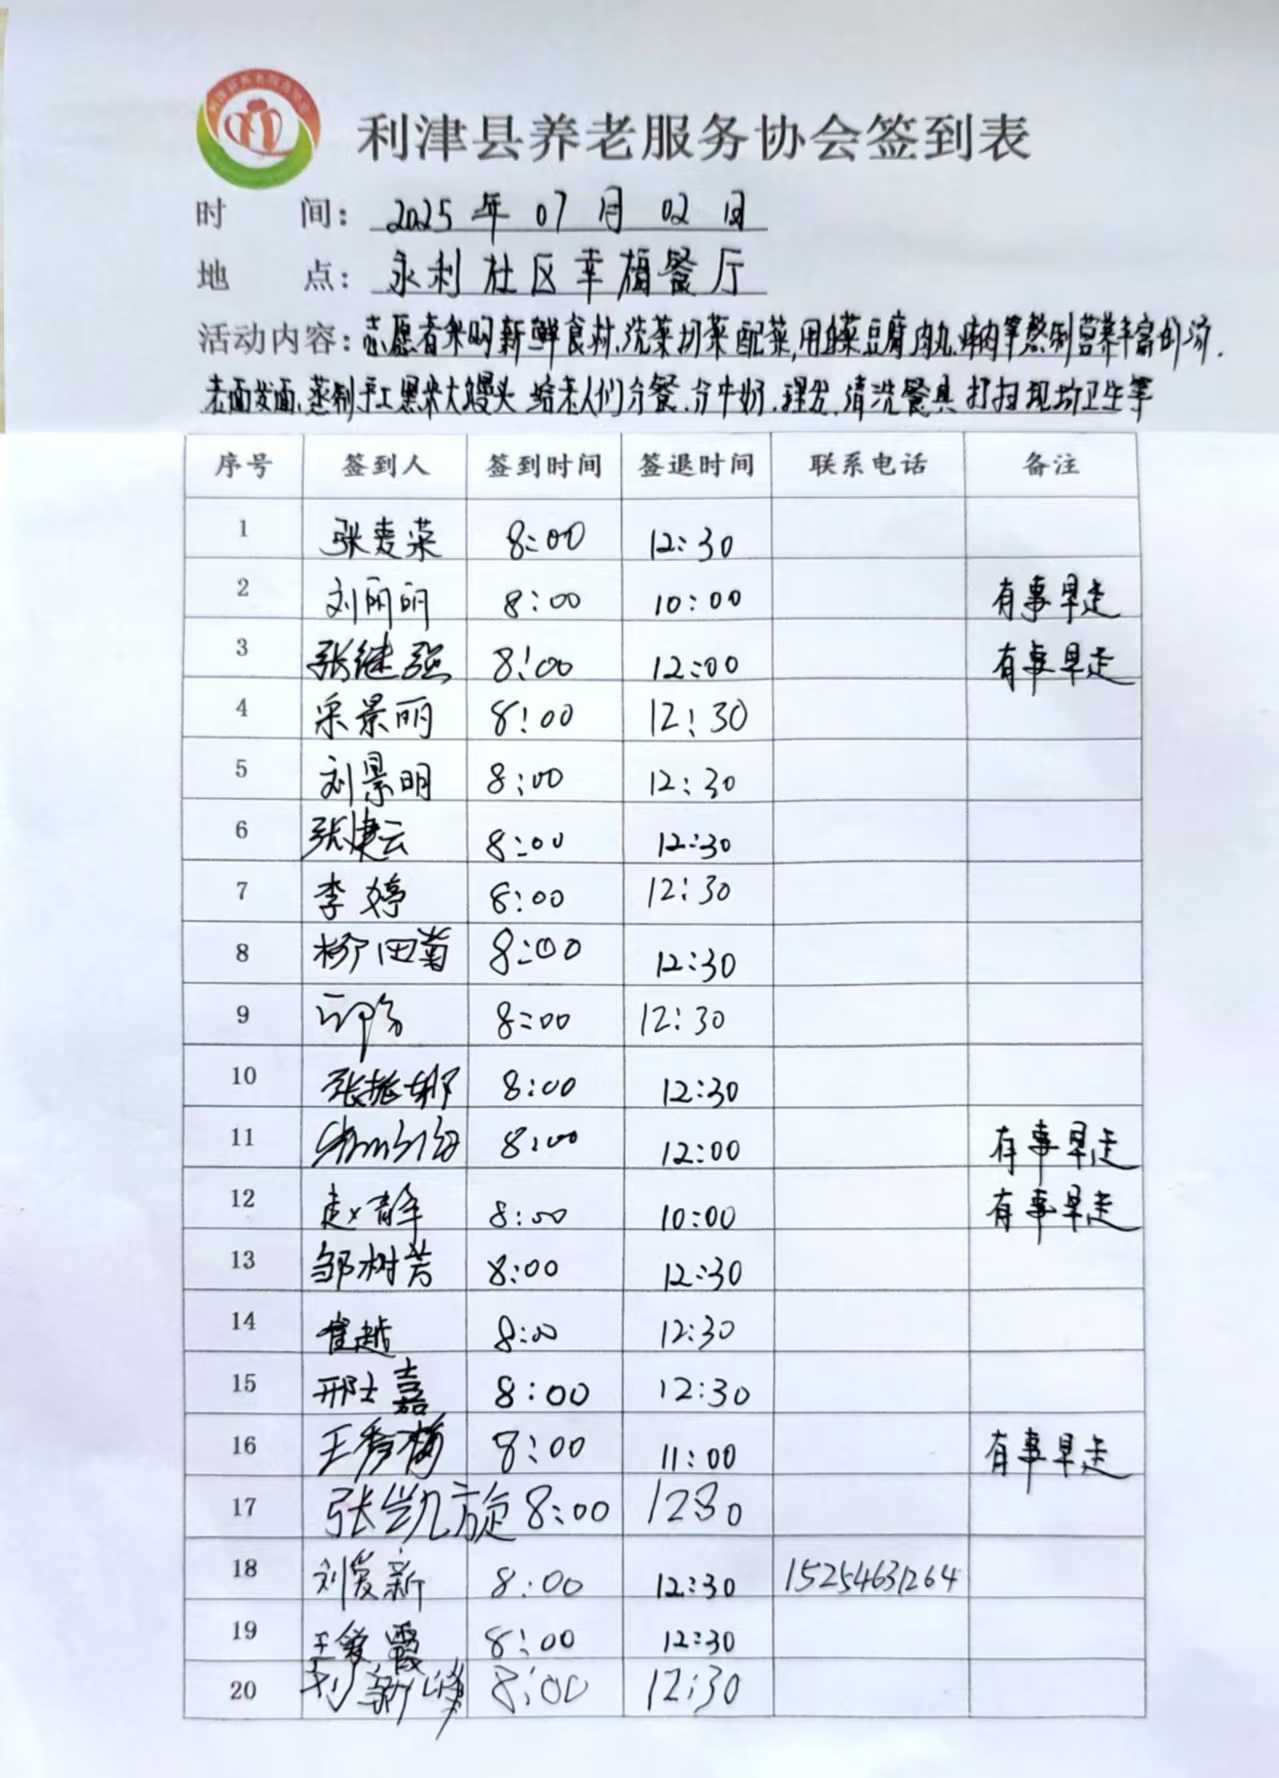 利津县养老服务协会签到表
时 间: 2025年07月02日
地 点: 永利社区幸福餐厅
活动内容: 志愿者采购新鲜食材、洗菜切菜配菜,用白菜豆腐肉丸 等熬制营养丰富的汤.
老面发面、蒸制手工黑米大馒头 给老人们分餐、分牛奶、理发、清洗餐具 打扫现场卫生等
序号 签到人 签到时间 签退时间 联系电话 备注
1 张麦荣 8:00 12:30
2 刘丽丽 8:00 10:00 有事早走
3 张继强 8:00 12:00 有事早走
4 景丽 8:00 12:30
5 刘景明 8:00 12:30
6 张建云 8:00 12:30
7 李婷 8:00 12:30
8 田菊 8:00 12:30
9 8:00 12:30
10 张振娜 8:00 12:30
11 8:00 12:00 有事早走
12 赵静 8:00 10:00 有事早走
13 邹树芳 8:00 12:30
14 崔越 8:00 12:30
15 邢士嘉 8:00 12:30
16 王秀梅 8:00 11:00 有事早走
17 张凯旋 8:00 12:30
18 刘爱新 8:00 12:30 15254631264
19 王爱霞 8:00 12:30
20 刘新峰 8:00 12:30